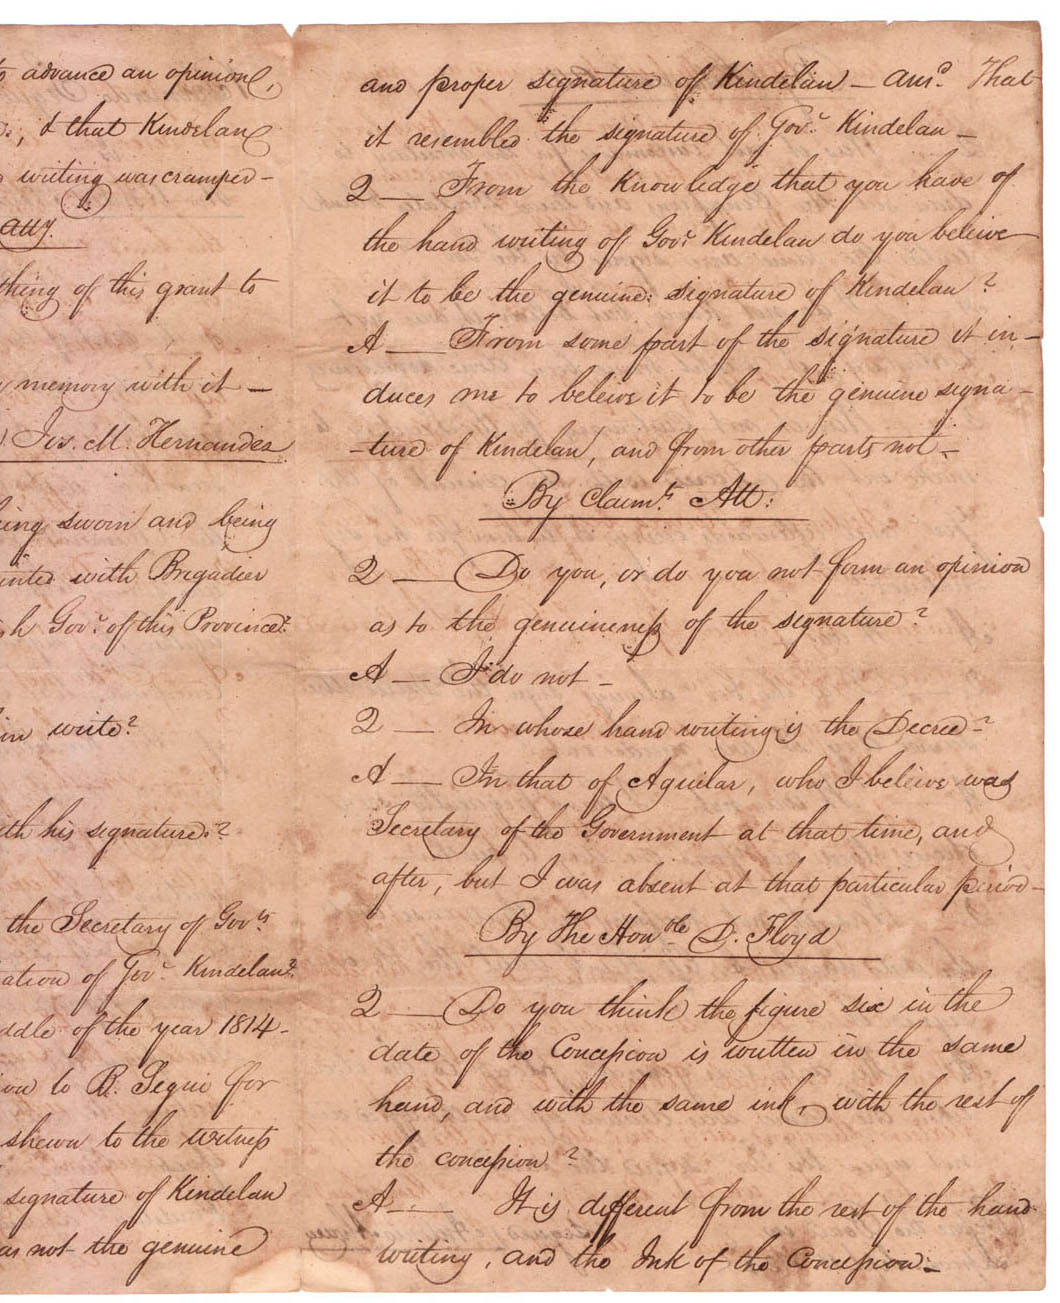 to advance an opinion,
, & that Kindelan
writing was cramped—
Atty.
thing of this grant to
memory with it —
Jos. M. Hernandez
being sworn and being
acquainted with Brigadier
Govr. of this Province?
write?
with his signature?
the Secretary of Govts.
of Govr. Kindelan?
middle of the year 1814—
to B. Segui for
shewn to the witness
signature of Kindelan
was not the genuine
and proper signature of Kindelan — ansd. That
it resembled the signature of Govr. Kindelan —
Q — From the Knowledge that you have of
the hand writing of Govr. Kindelan do you beleive
it to be the genuine signature of Kindelan?
A — From some part of the signature it in-
duces me to beleive it to be the genuine signa-
-ture of Kindelan, and from other parts not —
By Claimts. Att:
Q — Do you, or do you not form an opinion
as to the genuineness of the signature?
A — I do not —
Q — In whose hand writing is the Decree?
A — In that of Aguilar, who I beleive was
Secretary of the Government at that time, and
after, but I was absent at that particular period—
By The Honble D. Floyd
Q — Do you think the figure six in the
date of the Concession is written in the same
hand, and with the same ink, with the rest of
the concession?
A — It is different from the rest of the hand
writing, and the Ink of the Concession. —